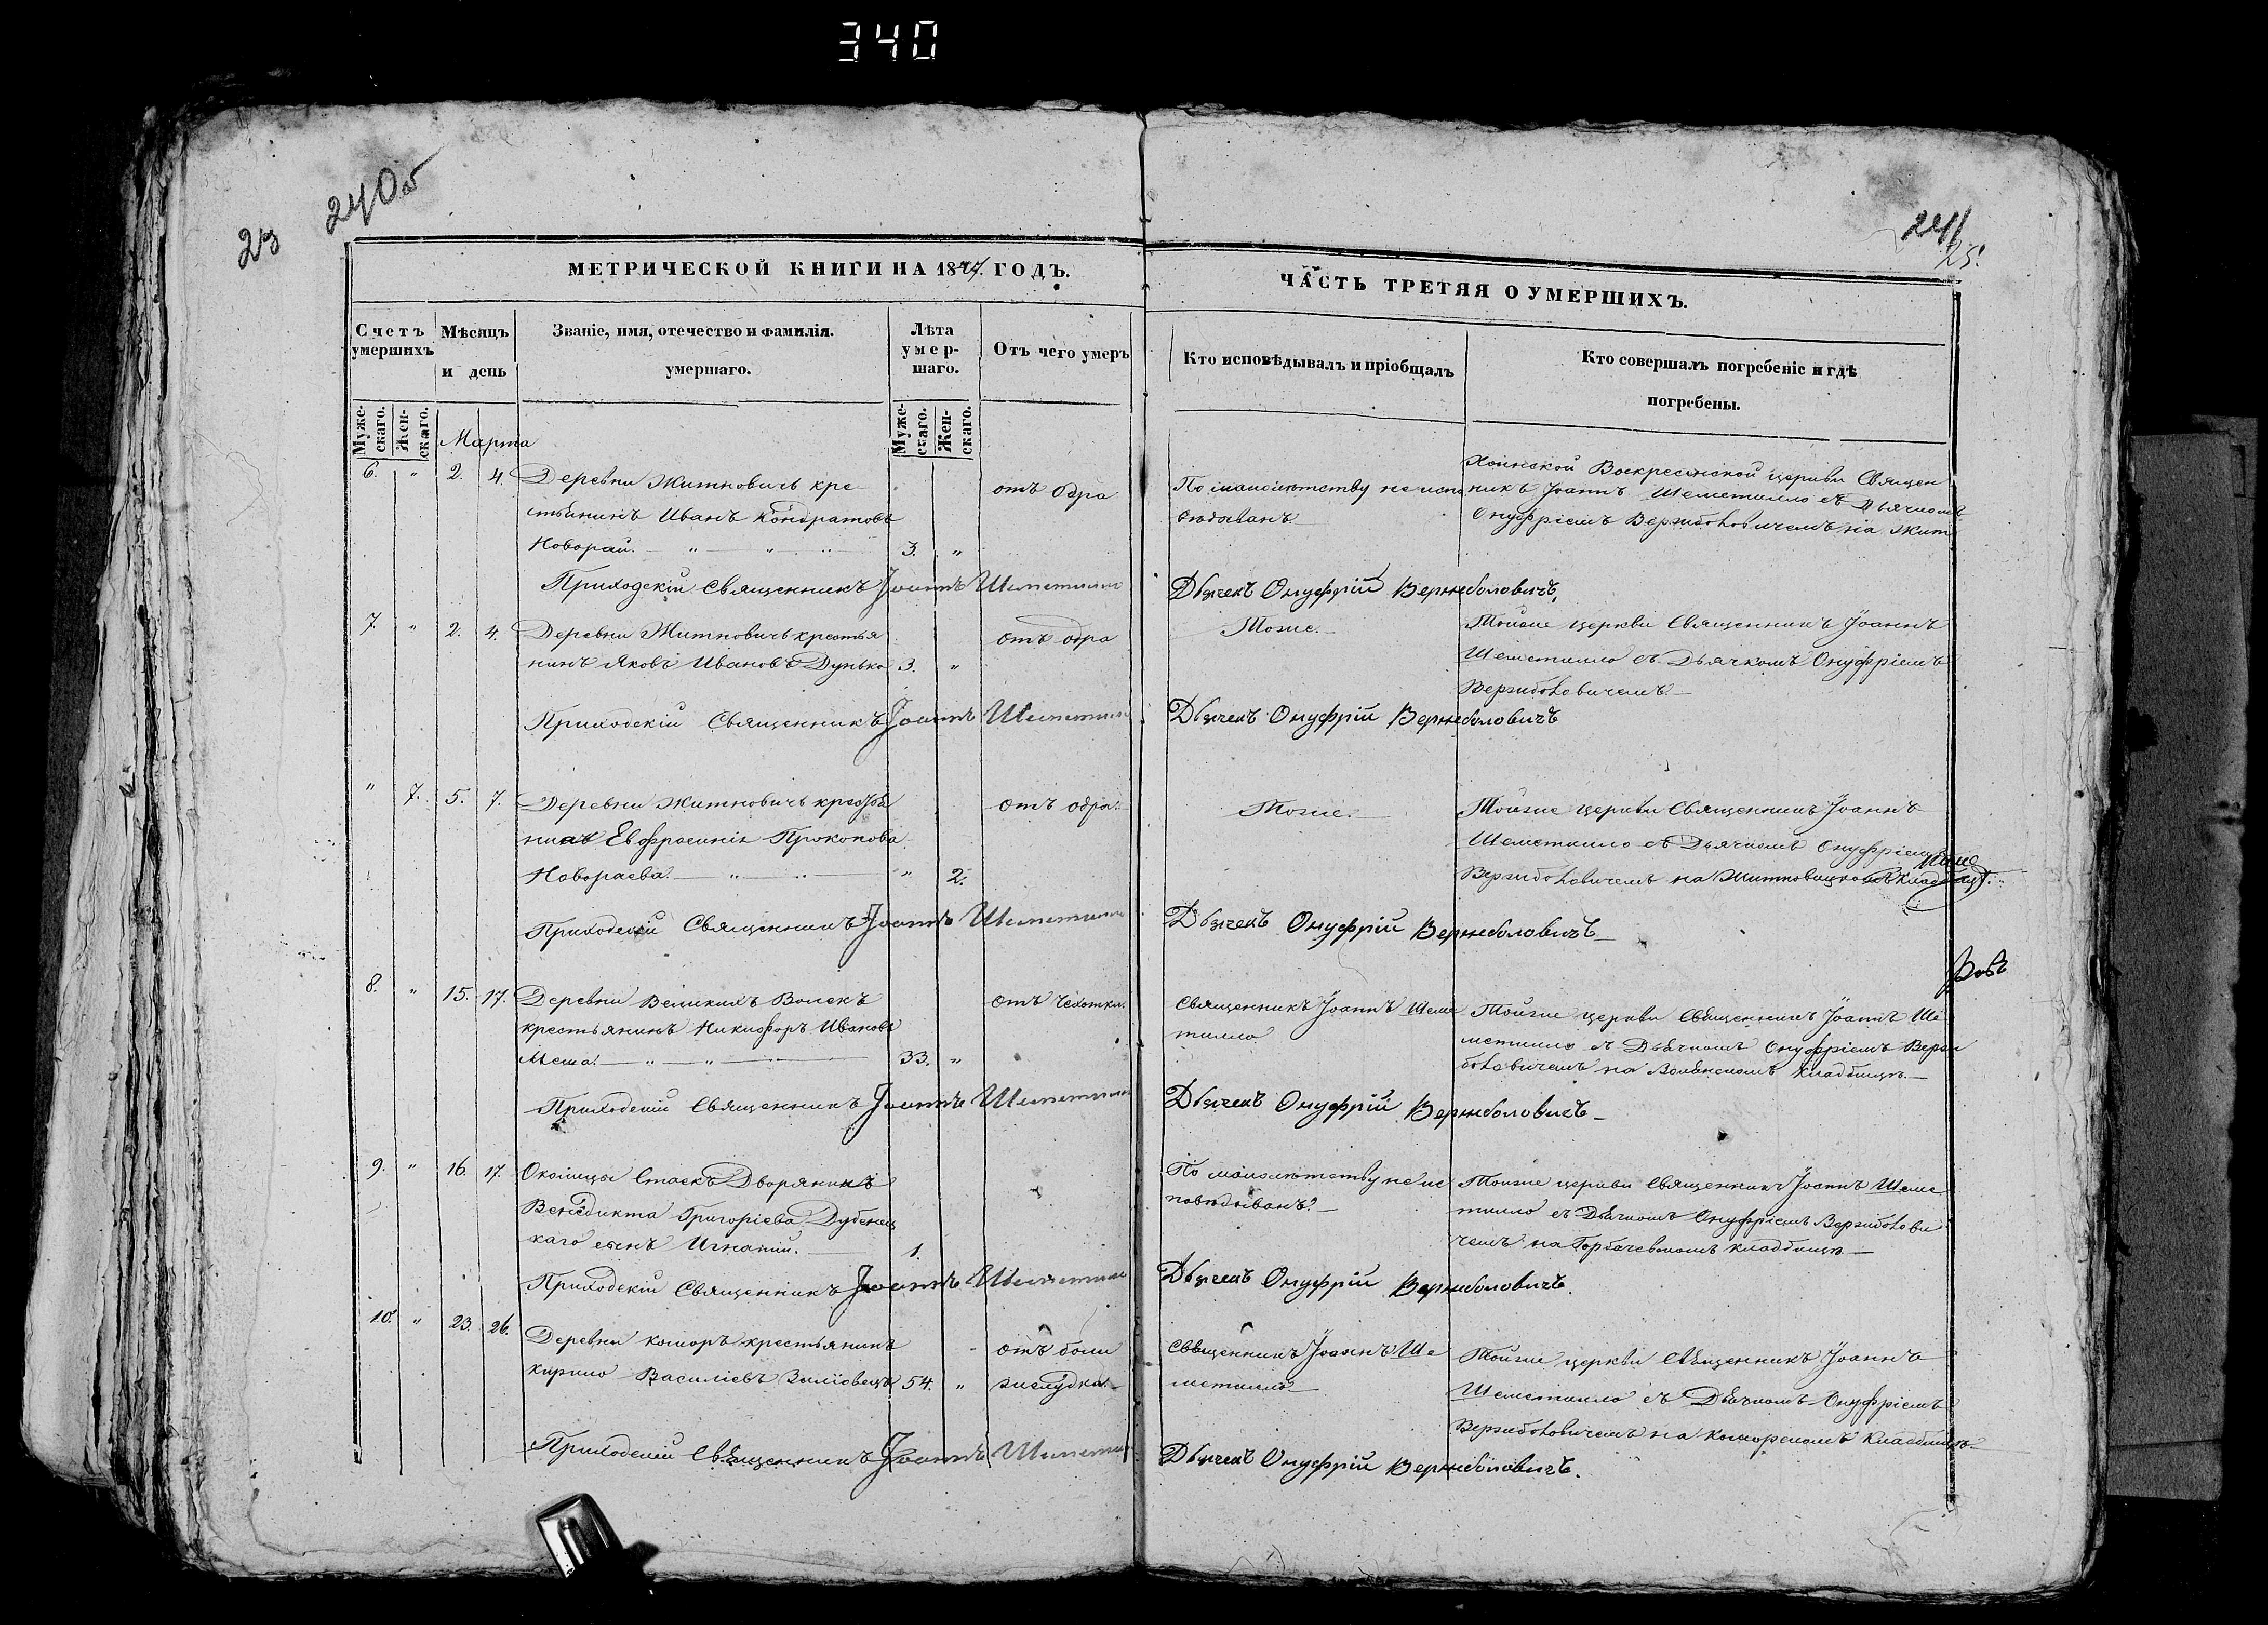 340
240об
23
241
25.
МЕТРИЧЕСКОЙ КНИГИ НА 1847. ГОДЪ.
Счетъ умершихъ
Мѣсяцъ и день
Званіе, имя, отечество и фамилія. умершаго.
Лѣта умершаго.
Отъ чего умеръ
Мужескаго. Женскаго.
Мужескаго. Женскаго.
Марта
6. " 2. 4. Деревни Житновичь кре
стьянинъ Иванъ Кондратовъ
Новорай. — " — " — " 3. "
отъ одра
Приходскій Священникъ Іоаннъ Шеметилло
7. " 2. 4. Деревни Житновичь крестья отъ одра
нинъ Яковъ Ивановъ Дунько 3. "
Приходскій Священникъ Іоаннъ Шеметилло
" 7. 5. 7. Деревни Житновичь крестья отъ одра.
нка Евфросинія Прокопова
Новораева. — " — " — " 2.
Приходскій Священникъ Іоаннъ Шеметилло
8. " 15. 17. Деревни Великихъ Волекъ отъ чехотки.
крестьянинъ Никифоръ Ивановъ
33. "
Приходскій Священникъ Іоаннъ Шеметилло
9. " 16. 17. Околицы Стаекъ Дворянина
Венедикта Григоріева Дубенец
каго сынъ Игнатій. — 1.
Приходскій Священникъ Іоаннъ Шеметилло
10. " 23. 26. Деревни Коморъ крестьянинъ отъ боли
Кирило Василіевъ 54. " желудка. —
Приходскій Священникъ Іоаннъ Шеметилло
ЧАСТЬ ТРЕТЯЯ О УМЕРШИХЪ.
Кто исповѣдывалъ и пріобщалъ
Кто совершалъ погребеніе и гдѣ погребены.
По малолѣтству не испо
вѣдыванъ.
Хоинской Воскресенской церкви Священ
никъ Іоаннъ Шеметилло съ Дьячкомъ
Онуфріемъ Вержболовичемъ на Жит
Дьячекъ Онуфрій Вержболовичъ,
Тоже. — Тойже церкви Священникъ Іоаннъ
Шеметилло съ Дьячкомъ Онуфріемъ
Вержболовичемъ. —
Дьячекъ Онуфрій Вержболовичъ
Тоже. — Тойже церкви Священникъ Іоаннъ
Шеметилло съ Дьячкомъ Онуфріемъ
Вержболовичемъ на Житновицкомъ кладбищѣ.
Дьячекъ Онуфрій Вержболовичъ —
Священникъ Іоаннъ Шеме
тилло
Тойже церкви Священникъ Іоаннъ Ше
метилло съ Дьячкомъ Онуфріемъ Верж
боловичемъ на кладбищѣ. —
Дьячекъ Онуфрій Вержболовичъ —
По малолѣтству не ис
повѣдыванъ. —
Тойже церкви Священникъ Іоаннъ Шеме
тилло съ Дьячкомъ Онуфріемъ Вержболови
чемъ на Горбачевскомъ кладбищѣ. —
Дьячекъ Онуфрій Вержболовичъ.
Священникъ Іоаннъ Ше
метилло —
Тойже церкви Священникъ Іоаннъ
Шеметилло съ Дьячкомъ Онуфріемъ
Вержболовичемъ на Коморскомъ кладбищѣ. —
Дьячекъ Онуфрій Вержболовичъ.